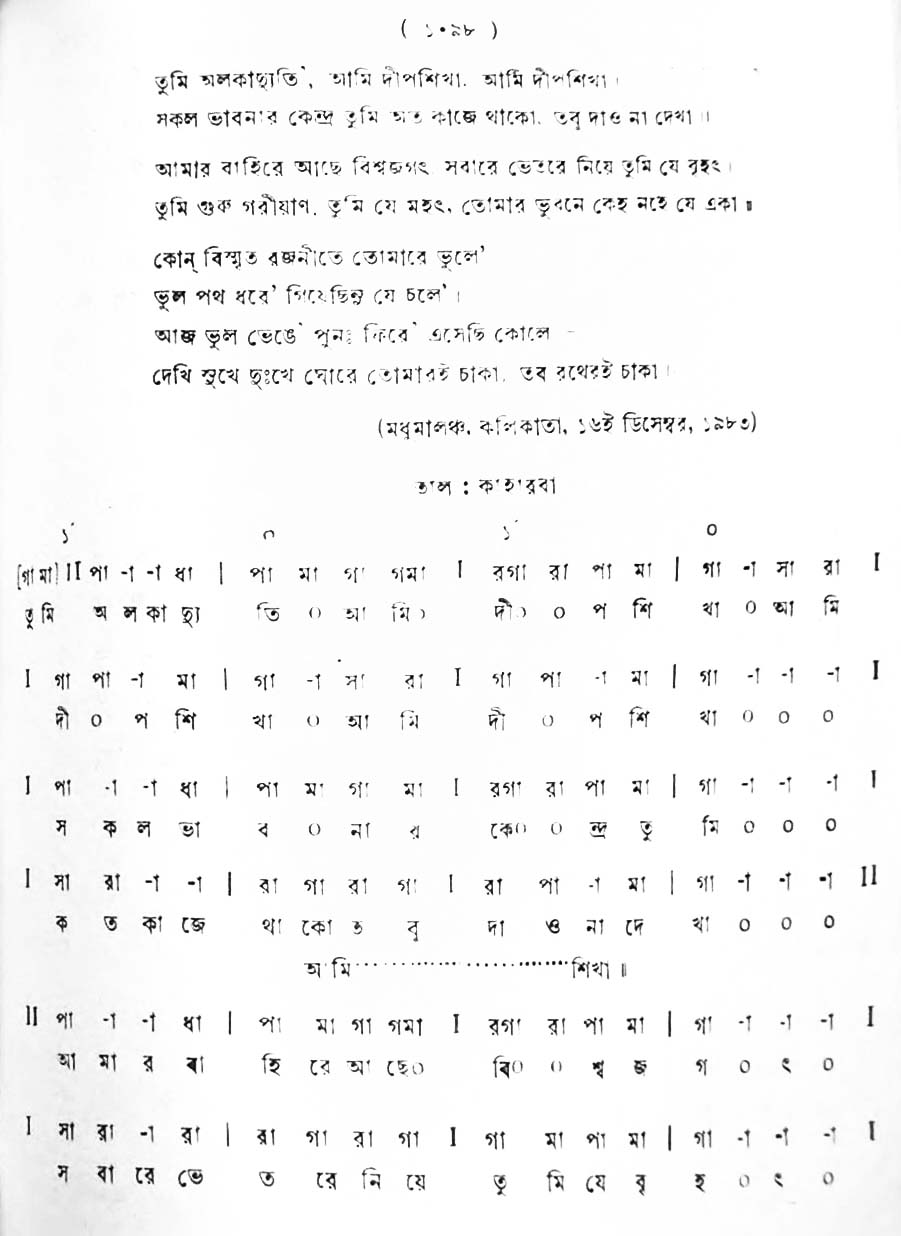 ( ১০৯৮ )
তুমি অলকাদ্যুতি, আমি দীপশিখা. আমি দীপশিখা।
সকল ভাবনার কেন্দ্র তুমি কাজে থাকো, তবু দাও না দেখা॥
আমার বাহিরে আছে বিশ্বজগৎ সবারে ভেতরে নিয়ে তুমি যে বৃহৎ।
তুমি গুরু গরীয়াণ, তুমি যে মহৎ, তোমার ভুবনে কেহ নহে যে একা॥
কোন্ বিস্মৃত রজনীতে তোমারে ভুলে'
ভুল পথ ধরে' গিয়েছিনু যে চলে'।
আজ ভুল ভেঙে' পুনঃ ফিরে' এসেছি কোলে -
দেখি সুখে দুঃখে ঘোরে তোমারই চাকা, তব রথেরই চাকা।
(মধুমালঞ্চ, কলিকাতা, ১৬ই ডিসেম্বর, ১৯৮৩)
তাল : কাহারবা
১´ ০ ১´ ০
[গা মা] II পা -া -া ধা | পা মা গা গমা I রগা রা পা মা | গা -া সা রা I
তু মি অ ল কা দ্যু তি ০ আ মি০ দী০ ০ প শি খা ০ আ মি
I গা পা -া মা | গা -া সা রা I গা পা -া মা | গা -া -া -া I
দী ০ প শি খা ০ আ মি দী ০ প শি খা ০ ০ ০
I পা -া -া ধা | পা মা গা মা I রগা রা পা মা | গা -া -া -া I
স ক ল ভা ব ০ না র কে০ ০ ন্দ্র তু মি ০ ০ ০
I সা রা -া -া | রা গা রা গা I রা পা -া মা | গা -া -া -া II
ক ত কা জে থা কো ত বু দা ও না দে খা ০ ০ ০
আমি....................শিখা॥
II পা -া -া ধা | পা মা গা গমা I রগা রা পা মা | গা -া -া -া I
আ মা র বা হি রে আ ছে০ বি০ ০ শ্ব জ গ ০ ৎ ০
I সা রা -া রা | রা গা রা গা I গা মা পা মা | গা -া -া -া I
স বা রে ভে ত রে নি য়ে তু মি যে বৃ হ ০ ৎ ০